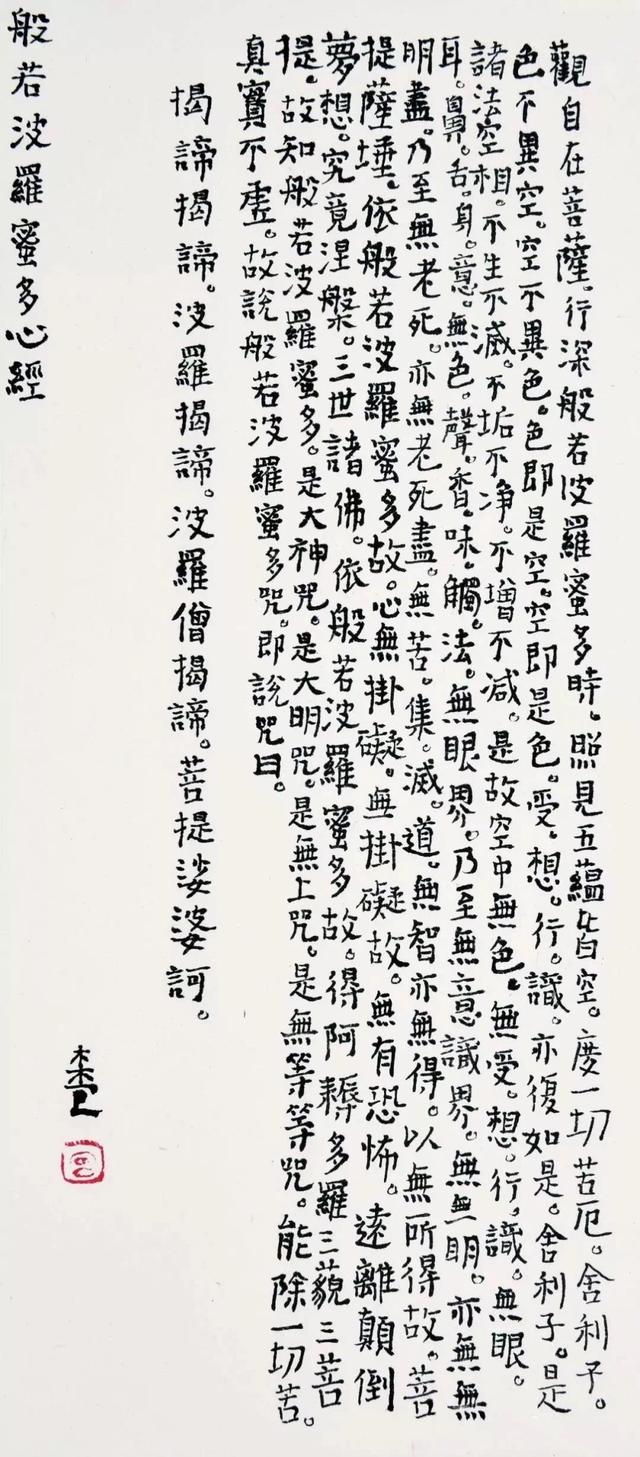 觀自在菩薩。行深般若波羅蜜多時。照見五蘊皆空。度一切苦厄。舍利子。
色不異空。空不異色。色即是空。空即是色。受。想。行。識。亦復如是。舍利子。是
諸法空相。不生不滅。不垢不净。不增不減。是故空中無色。無受。想。行。識。無眼。
耳。鼻。舌。身。意。無色。聲。香。味。觸。法。無眼界。乃至無意識界。無無明。亦無無
明盡。乃至無老死。亦無老死盡。無苦。集。滅。道。無智亦無得。以無所得故。菩
提薩埵。依般若波羅蜜多故。心無掛礙。無掛礙故。無有恐怖。遠離顛倒
夢想。究竟涅槃。三世諸佛。依般若波羅蜜多故。得阿耨多羅三藐三菩
提。故知般若波羅蜜多。是大神咒。是大明咒。是無上咒。是無等等咒。能除一切苦。
真實不虛。故說般若波羅蜜多咒。即說咒曰。
揭諦揭諦。波羅揭諦。波羅僧揭諦。菩提娑婆訶。
般若波羅蜜多心經